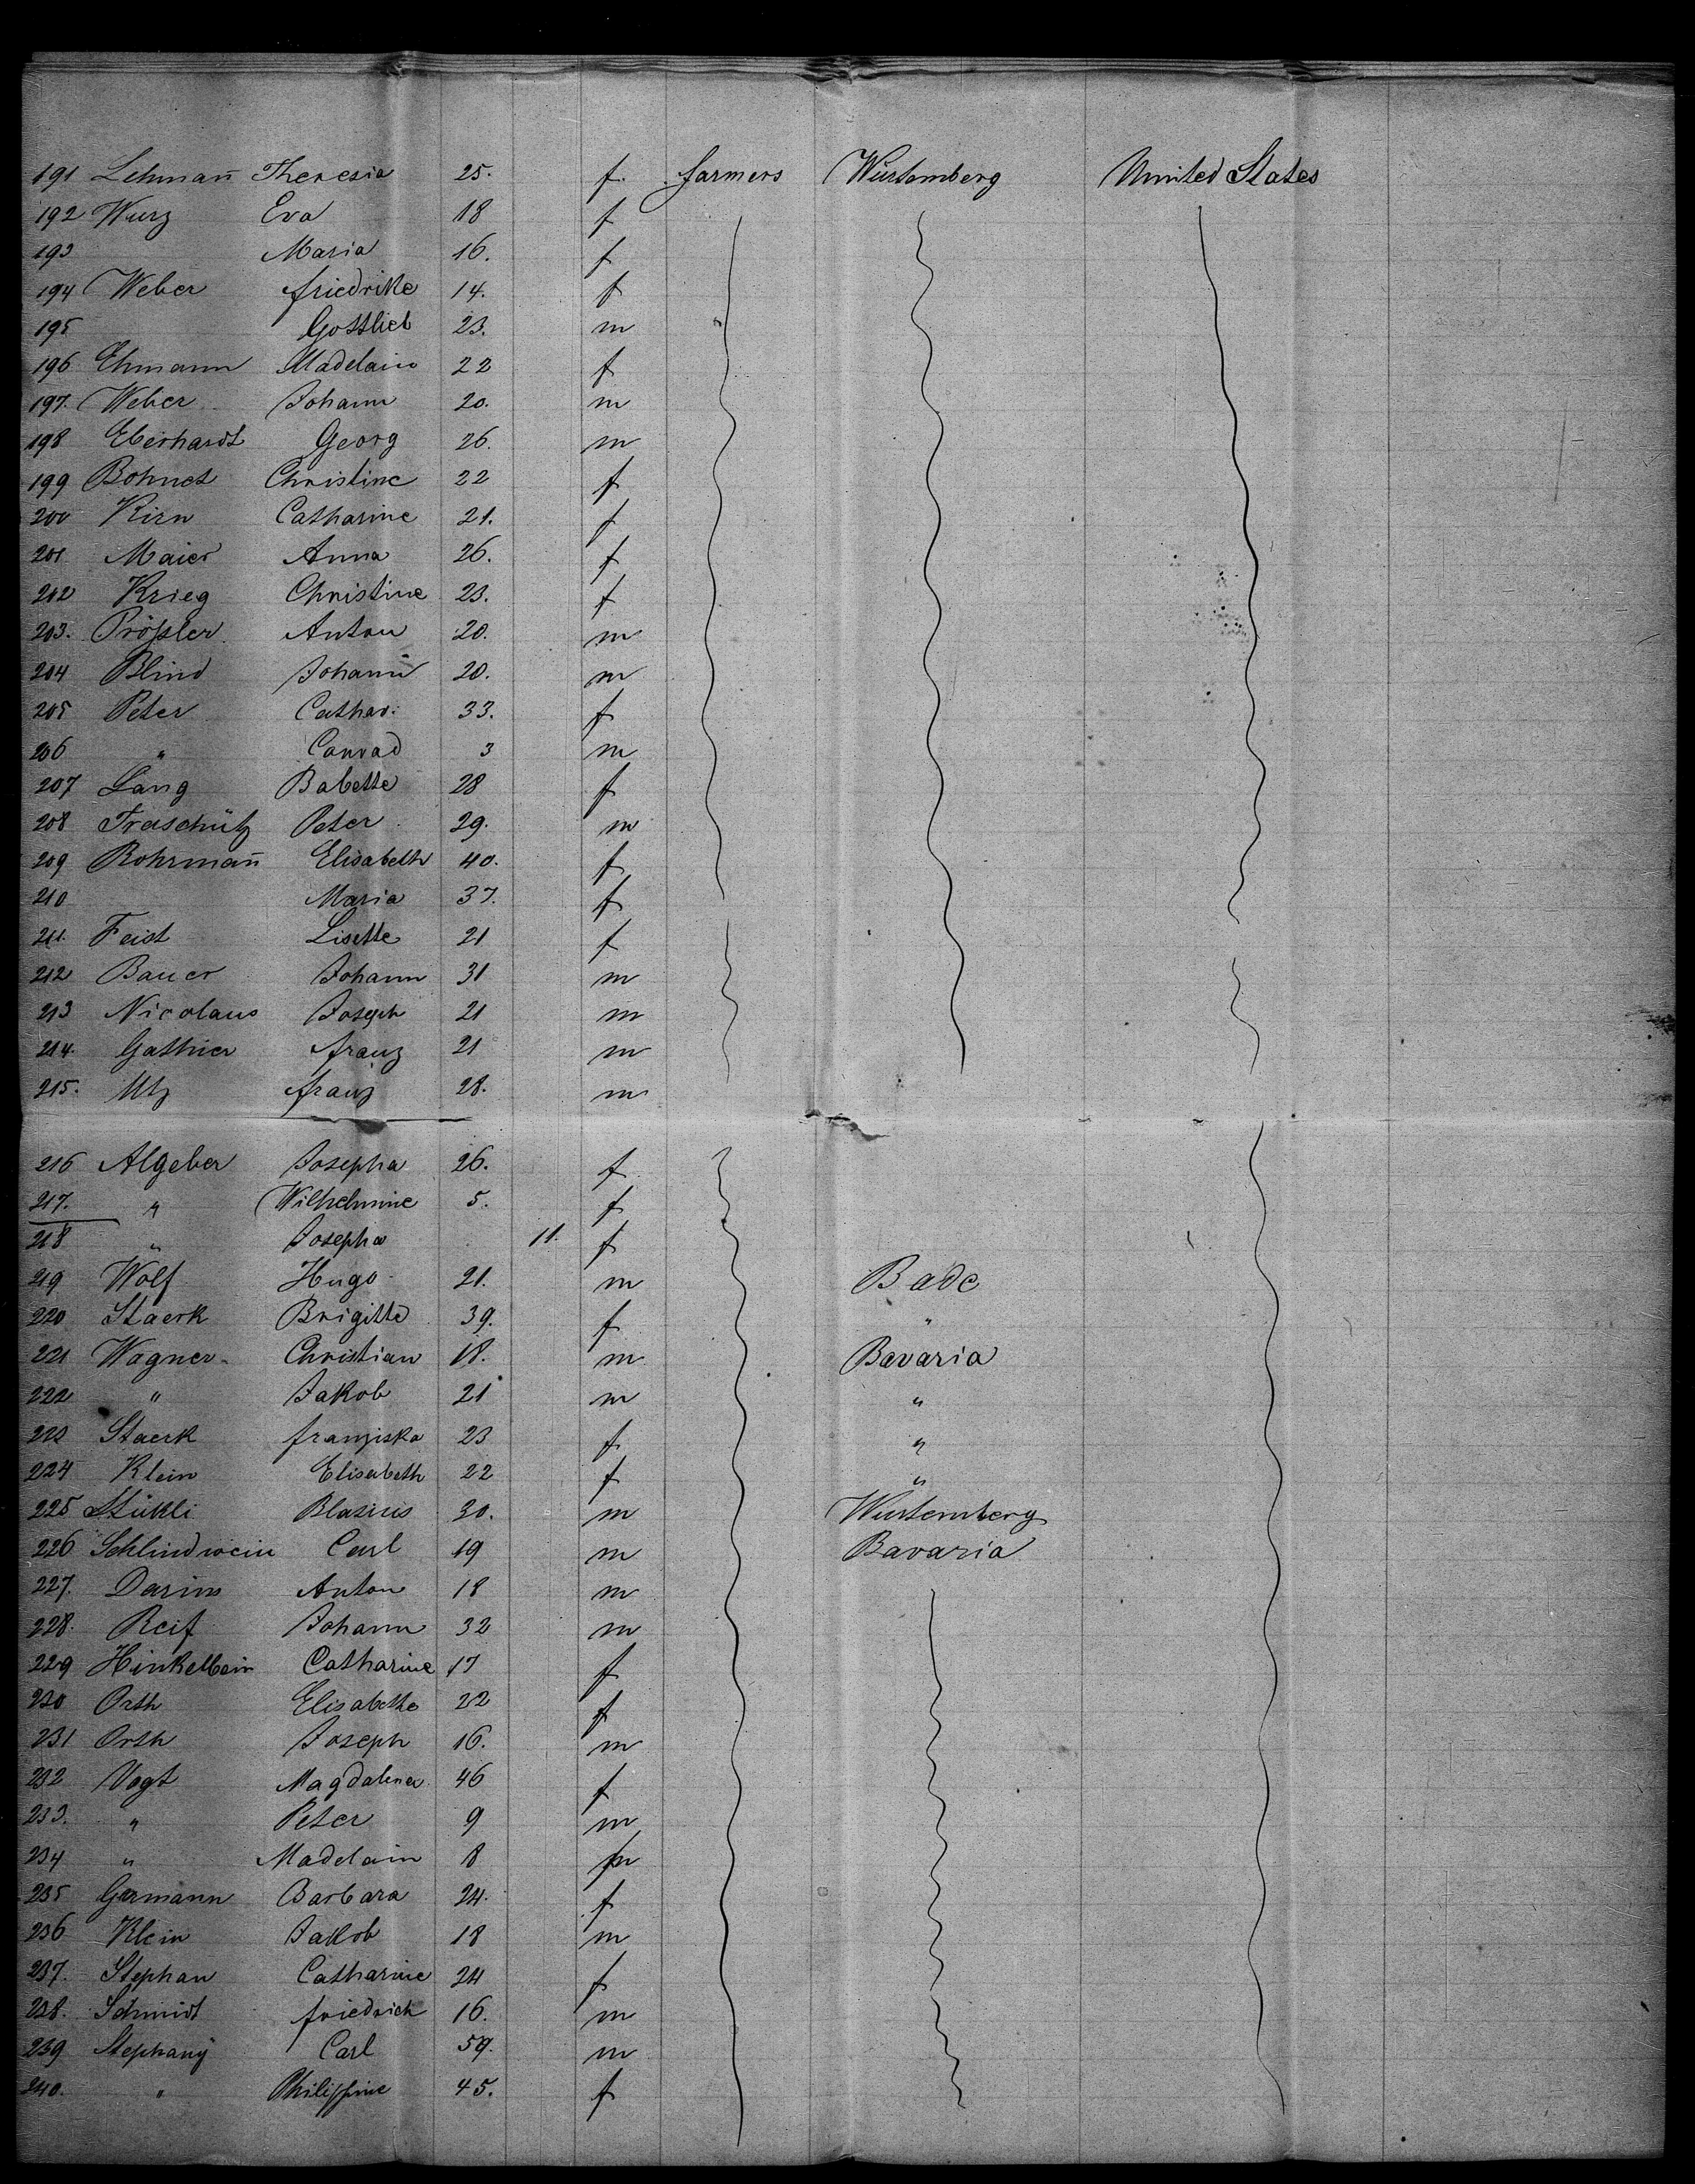 191 Lehman̄ Theresia 25. f. farmers Würtemberg United States
192 Wurz Eva 18 f
193 Maria 16. f
194 Weber friedrike 14. f
195 Gottlieb 23. m
196 Ehmann Madelain 22 f
197. Weber Johann 20. m
198 Eberhardt Georg 26. m
199 Bohnet Christine 22 f
200 Kirn Catharine 21. f
201 Maier Anna 26. f
202 Krieg Christine 23. f
203. Prößler Anton 20. m
204 Blind Johann 20. m
205 Peter Cathar: 33. f
206 " Conrad 3 m
207 Lang Babette 28 f
208 Traschütz Peter 29. m
209 Rohrman̄ Elisabeth 40. f
210 Maria 37. f
211. Feist Lisette 21 f
212 Bauer Johann 31 m
213 Nicolaus Joseph 21 m
214. Gathier franz 21 m
215. Utz franz 28. m
216 Algeber Josepha 26. f
217. " Wilhelmine 5. f
218 " Josepha 11. f
219 Wolf Hugo 21. m Bade
220 Staerk Brigitte 39. f "
221 Wagner Christian 18. m Bavaria
222 " Jakob 21 m "
223 Staerk franziska 23 f "
224 Klein Elisabeth 22 f "
225 Stükli Blasius 30. m Würtemberg
226 Schlindwein Carl 19 m Bavaria
227. Darius Anton 18 m
228. Reif Johann 32 m
229 Hinkelbein Catharine 17 f
230 Orth Elisabethe 22 f
231 Orth Joseph 16. m
232 Vogt Magdalena 46 f
233. " Peter 9 m
234 " Madelain 8
235 Germann Barbara 24. f
236 Klein Jakob 18 m
237. Stephan Catharine 24 f
238. Schmidt friedrich 16. m
239 Stephany Carl 59. m
240. " Philippine 45. f